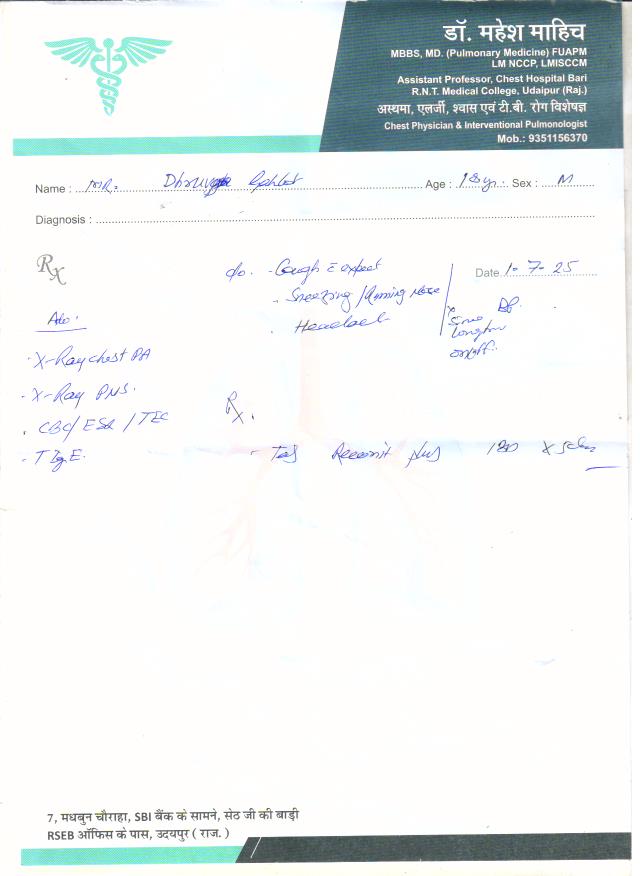 डॉ. महेश माहिच
MBBS, MD. (Pulmonary Medicine) FUAPM
LM NCCP, LMISCCM
Assistant Professor, Chest Hospital Bari
R.N.T. Medical College, Udaipur (Raj.)
अस्थमा, एलर्जी, श्वास एवं टी.बी. रोग विशेषज्ञ
Chest Physician & Interventional Pulmonologist
Mob.: 9351156370
Name : MR. Age : 18yr. Sex : M
Diagnosis :
Rx
c/o. - Cough c expect
Date 1-7-25
- Sneezing / Running Nose
- Headach
Since
longtime
on/off.
Adv:
- X-Ray chest PA
- X-Ray PNS.
- CBC/ ESR / TEC
- T IgE.
Rx.
- Tab
7, मधबुन चौराहा, SBI बैंक के सामने, सेठ जी की बाड़ी
RSEB ऑफिस के पास, उदयपुर ( राज. )